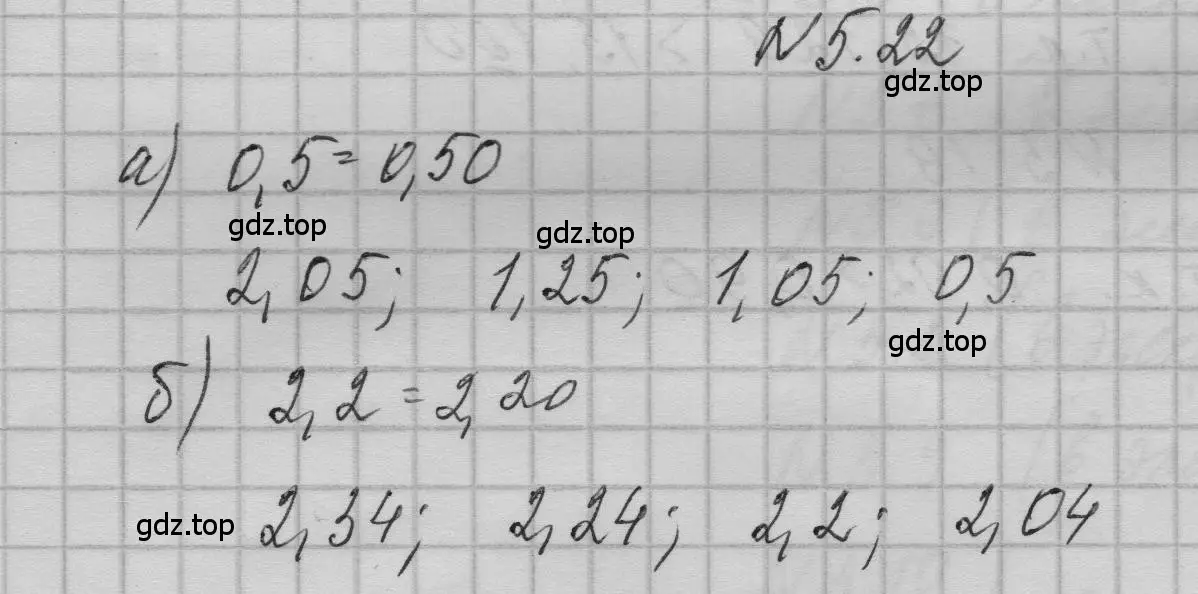 N 5.22
gdz.top
а) 0,5 = 0,50
gdz.top gdz.top
2,05; 1,25; 1,05; 0,5
gdz.top
б) 2,2 = 2,20
gdz.top 2,34; 2,24; 2,2; 2,04